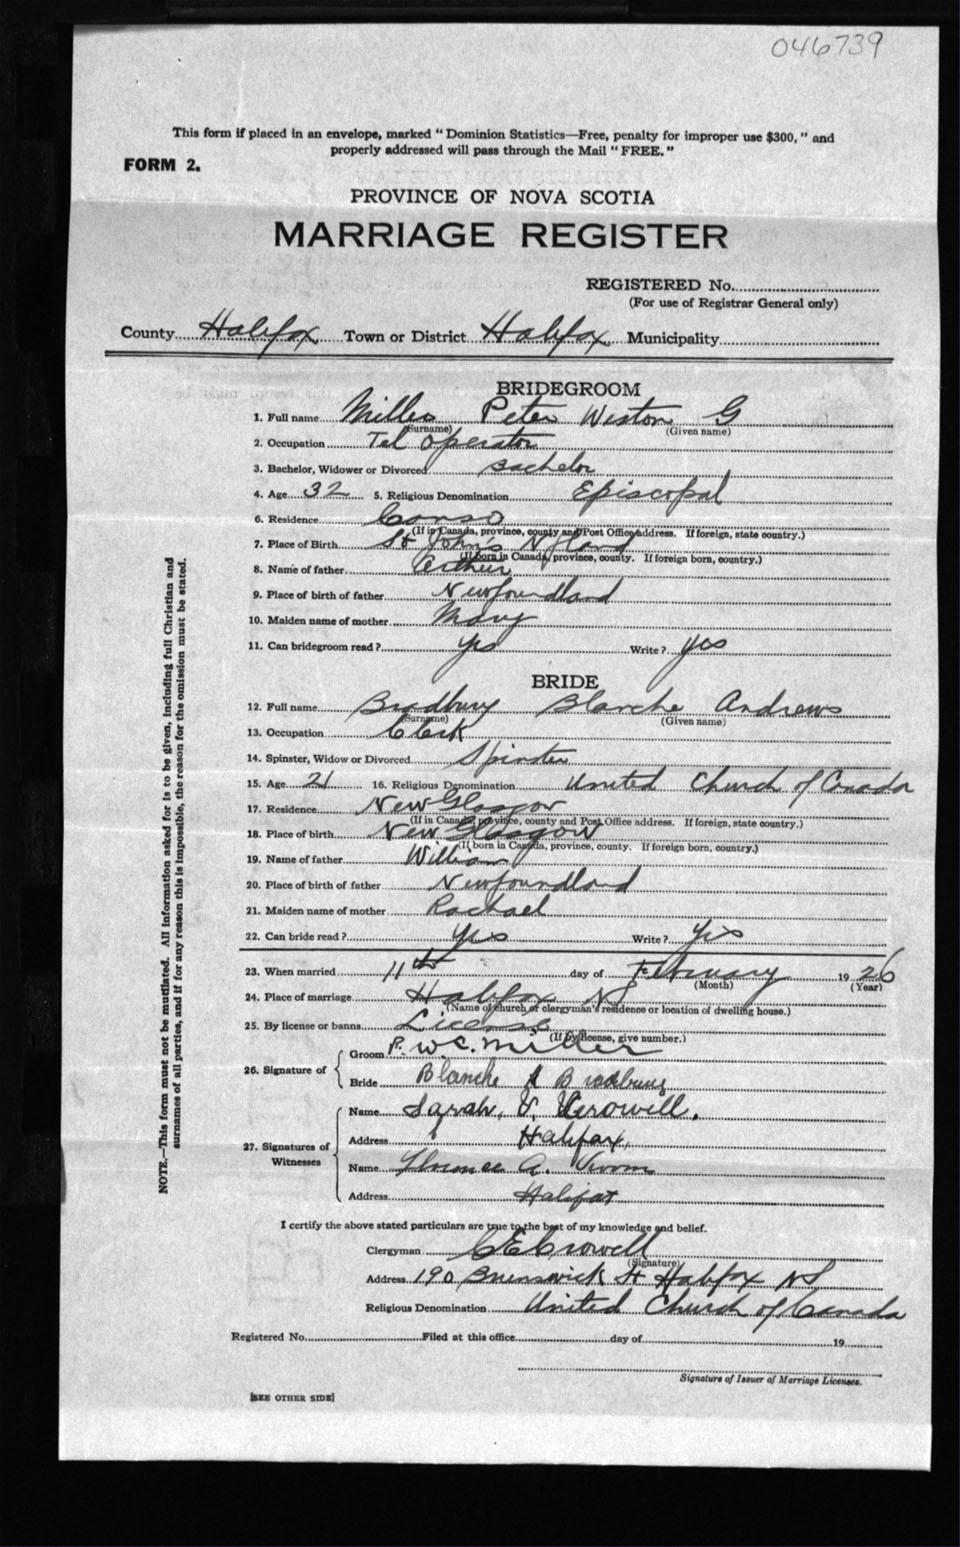 046739
This form if placed in an envelope, marked "Dominion Statistics—Free, penalty for improper use $300," and
properly addressed will pass through the Mail "FREE."
FORM 2.
PROVINCE OF NOVA SCOTIA
MARRIAGE REGISTER
REGISTERED No.
(For use of Registrar General only)
County Halifax Town or District Halifax Municipality
BRIDEGROOM
1. Full name Miller Peter Weston G
(Surname) (Given name)
2. Occupation Tel Operator
3. Bachelor, Widower or Divorced Bachelor
4. Age 32 5. Religious Denomination Episcopal
6. Residence Canso
(If in Canada, province, county and Post Office address. If foreign, state country.)
7. Place of Birth St John's Nfland
(If born in Canada, province, county. If foreign born, country.)
8. Name of father Arthur
9. Place of birth of father Newfoundland
10. Maiden name of mother Mary
11. Can bridegroom read? yes Write? yes
BRIDE
12. Full name Bradbury Blanche Andrews
(Surname) (Given name)
13. Occupation Clerk
14. Spinster, Widow or Divorced Spinster
15. Age 21 16. Religious Denomination United Church of Canada
17. Residence New Glasgow
(If in Canada, province, county and Post Office address. If foreign, state country.)
18. Place of birth New Glasgow
(If born in Canada, province, county. If foreign born, country.)
19. Name of father William
20. Place of birth of father Newfoundland
21. Maiden name of mother Rachael
22. Can bride read? yes Write? yes
23. When married 11th day of February 1926
(Month) (Year)
24. Place of marriage Halifax NS
(Name of church or clergyman's residence or location of dwelling house.)
25. By license or banns License
(If by license, give number.)
26. Signature of
Groom P. W. C. Miller
Bride Blanche A Bradbury
27. Signatures of Witnesses
Name Sarah, V. Crowell.
Address Halifax,
Name Florence A. Vroom
Address Halifax
I certify the above stated particulars are true to the best of my knowledge and belief.
Clergyman C E Crowell
(Signature)
Address 190 Brunswick St Halifax NS
Religious Denomination United Church of Canada
Registered No. Filed at this office day of 19
Signature of Issuer of Marriage Licenses.
[SEE OTHER SIDE]
NOTE.—This form must not be mutilated. All information asked for is to be given, including full Christian and
surnames of all parties, and if for any reason this is impossible, the reason for the omission must be stated.